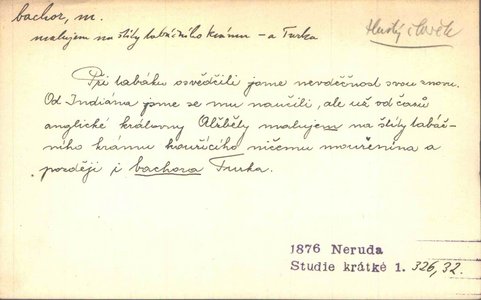 bachor, m.
malujem na štíty tabáčního krámu – a Turka
tlustý člověk
Při tabáku osvědčili jsme nevděčnost svou znova.
Od Indiána jsme se mu naučili, ale už od časů
anglické královny Alžběty malujem na štíty tabáč-
ního krámu kouřícího ničemu mouřenína a
později i bachora Turka.
1876 Neruda
Studie krátké 1. 326,32.